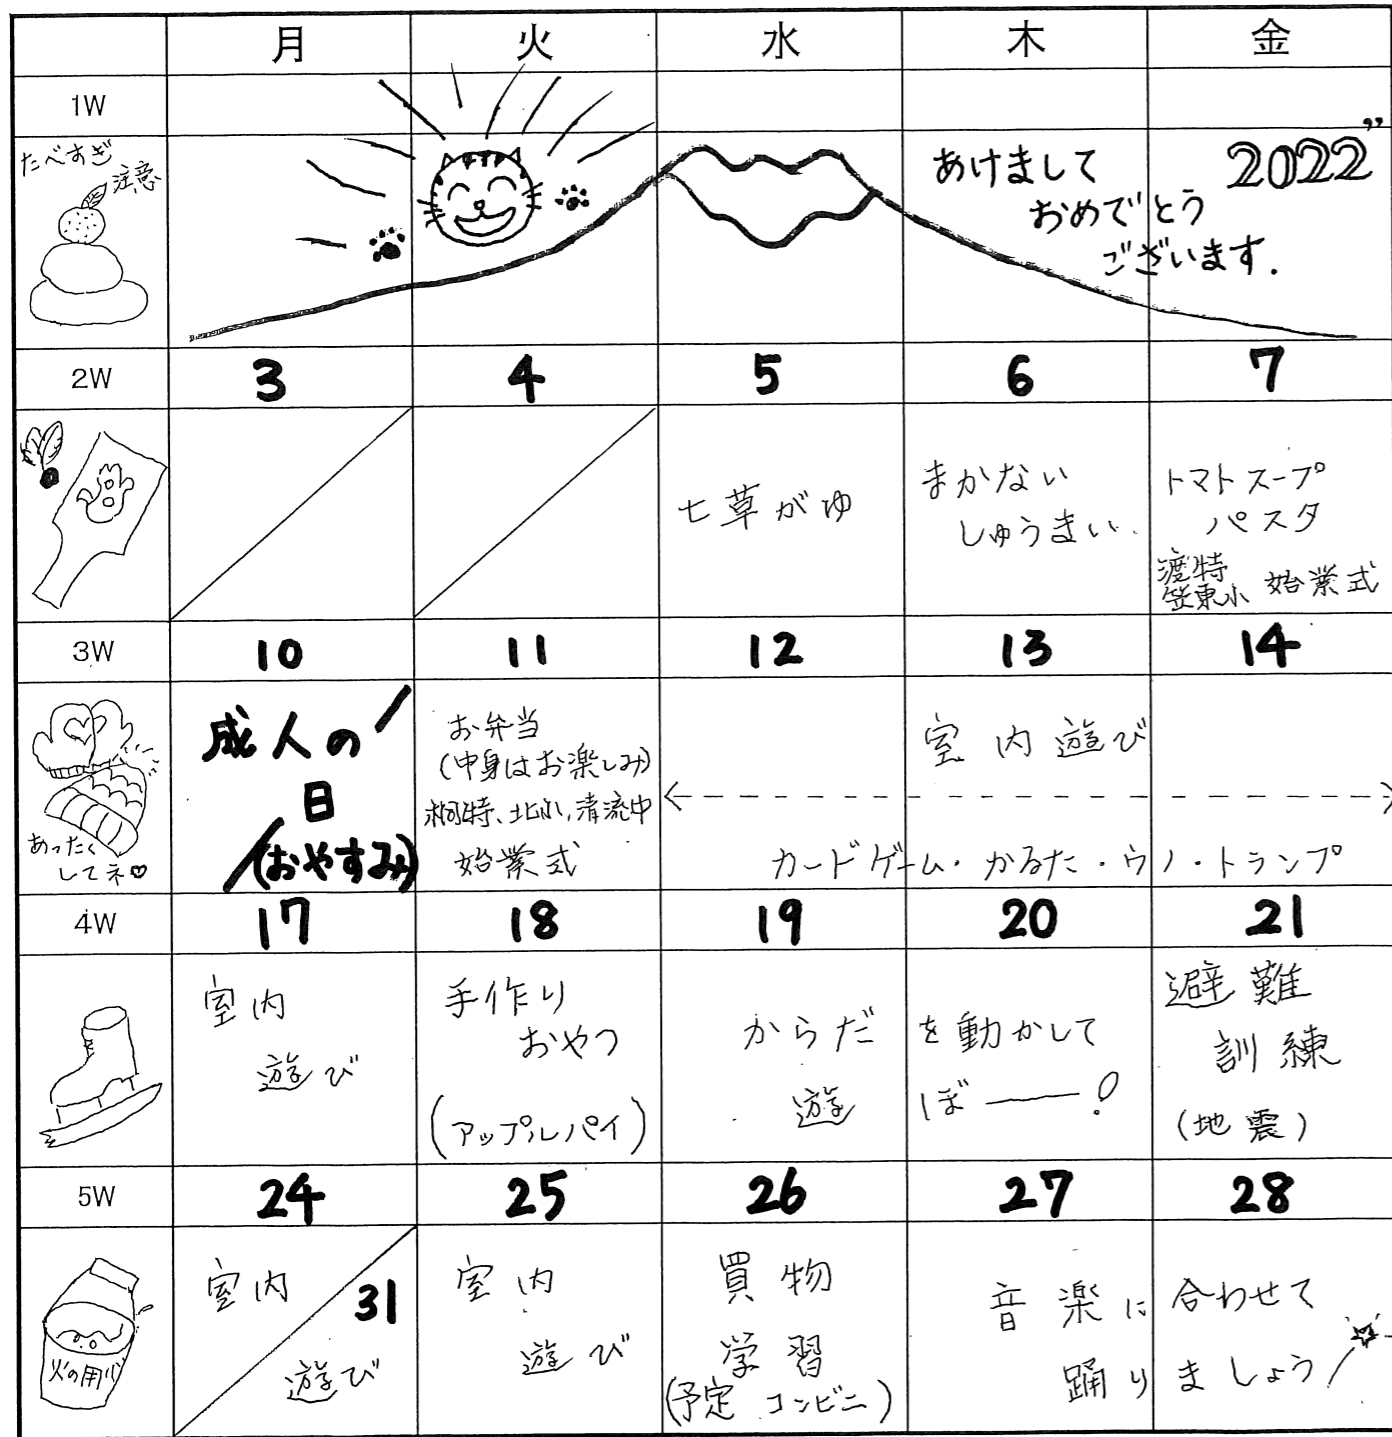 月 火 水 木 金
1W
たべすぎ
注意
あけまして
おめでとう
ございます.
2022
2W 3 4 5 6 7
七草がゆ
まかない
しゅうまい.
トマトスープ
パスタ
渡特
笠東小 始業式
3W 10 11 12 13 14
あったく
してネ♡
成人の
日
(おやすみ)
お弁当
(中身はお楽しみ)
桐特、北小、清流中
始業式
室内遊び
カードゲーム・かるた・ウノ・トランプ
4W 17 18 19 20 21
室内
遊び
手作り
おやつ
(アップルパイ)
からだを動かして
遊ぼー!
避難
訓練
(地震)
5W 24 25 26 27 28
火の用心
室内
遊び
31
室内
遊び
買物
学習
(予定 コンビニ)
音楽に合わせて
踊りましょう